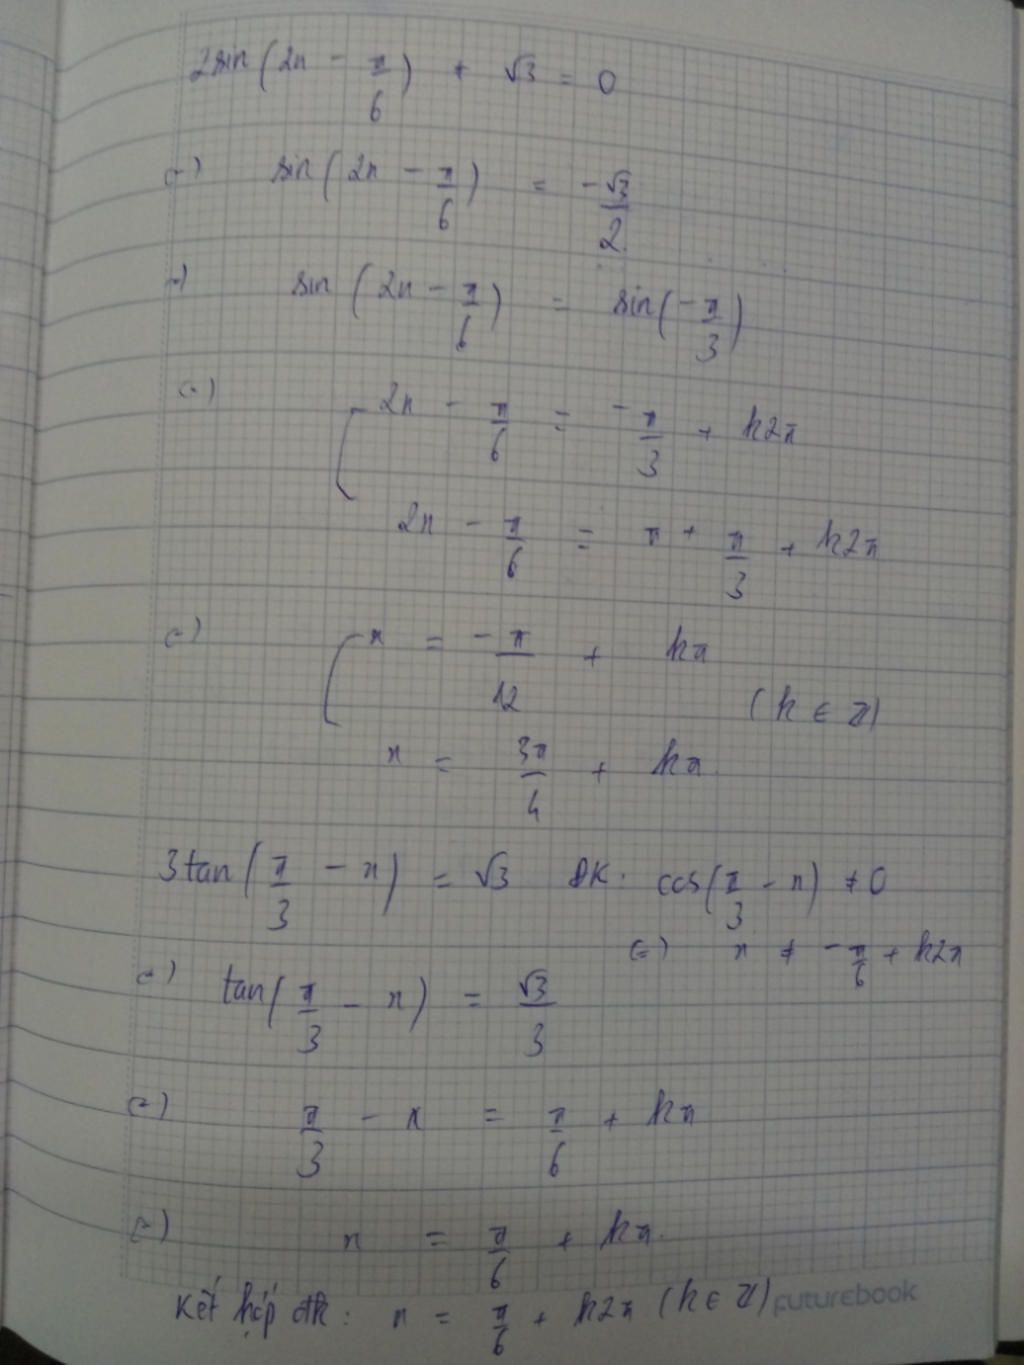 2sin(2x - π/6) + √3 = 0
(=) sin(2x - π/6) = -√3/2
(=) sin(2x - π/6) = sin(-π/3)
(=) [ 2x - π/6 = -π/3 + k2π
2x - π/6 = π + π/3 + k2π
(=) [ x = -π/12 + kπ
(k ∈ Z)
x = 3π/4 + kπ
3tan(π/3 - x) = √3 ĐK: cos(π/3 - x) ≠ 0
(=) x ≠ -π/6 + k2π
(=) tan(π/3 - x) = √3/3
(=) π/3 - x = π/6 + kπ
(=) x = π/6 + kπ.
Kết hợp đk: x = π/6 + k2π (k ∈ Z) futurebook